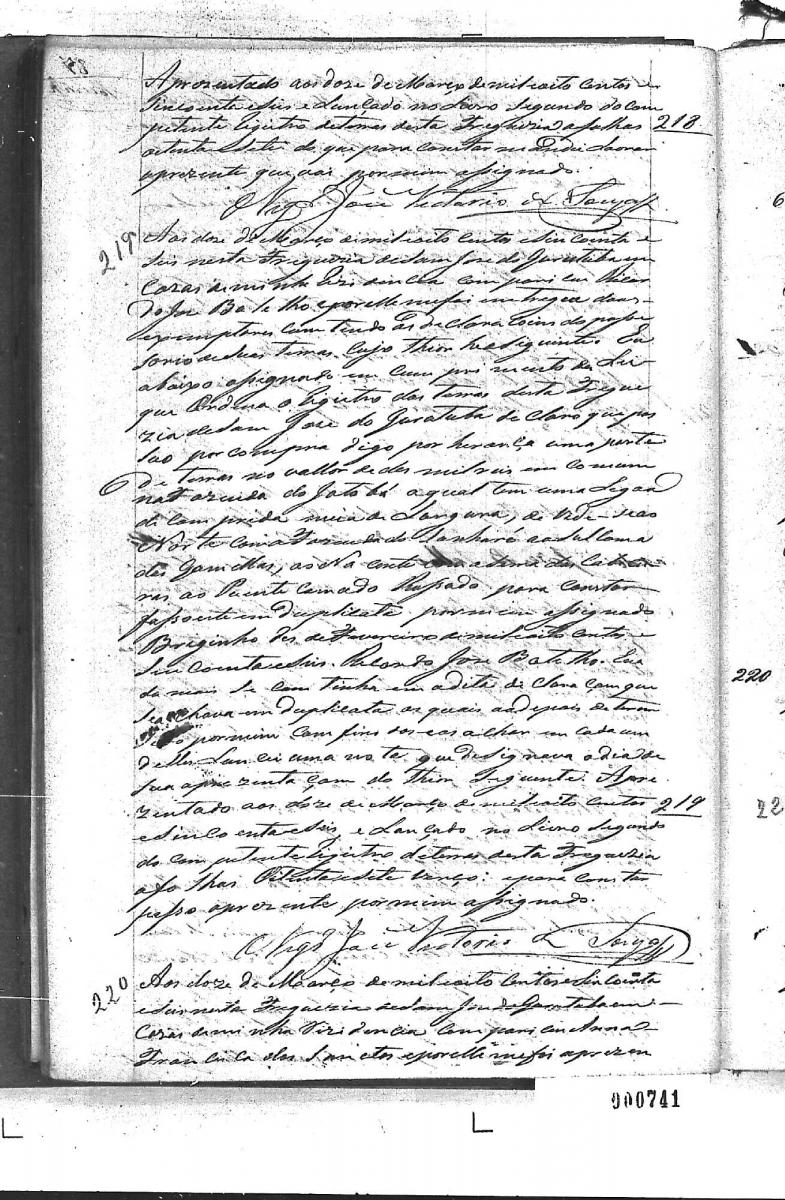 Aprezentado aos doze de Março de mil oito centos e
sincoenta e seis e Lançado no Livro Segundo do com
petente registro de terras desta Freguezia a folhas 218
oitenta e sete do que para constar
aprezente que vai por mim assignado.
O Vigr.o José Victorio de Souza
219
Aos doze de Março de mil oito centos e sincoenta e
seis nesta Freguezia de Sam José do Gurutuba em
Cazas de minha Rezidencia compareceu Ricar
do José Botelho e por elle me foi entregue dous
exemplares contendo as declaraçoins do posse
sorio de suas terras cujo thior he o seguinte. Eu
abaixo assignado em comprimento da Lei
que Ordena o registro das terras desta Fregue
zia de Sam José do Gurutuba declaro que pos
suo por compra digo por herança uma parte
de terras no vallor de des mil reis em comum
na Fazenda do Jatobá a qual tem uma Legoa
de comprida meia de Largura, devide-se ao
Norte com a Fazenda do Tanhare ao Sul com a
das Gamellas, ao Nacente com a terra das Cabecei
ras ao Puente com ado Rapado para constar
passo este em Duplicata por mim assignado
Breginho des de Fevereiro de mil oito centos e
sincoenta e seis. Ricardo José Botelho. E na
da mais se continha em a dita declaraçam que
se achava em duplicata as quais ao depois de terem
sido por mim conferidos e os achar em cada um
delles Lancei uma nota que designava o dia de
sua aprezentaçam do thior seguinte. Apre
zentado aos doze de Março de mil oito centos 219
e sincoenta e seis, e Lançado no Livro Segundo
do competente registro de terras desta Freguezia
a folhas Oitenta e sete verço: e para constar
passo aprezente por mim assignado.
O Vigr.o José Victorio de Souza
220
Aos doze de Março de mil oito centos e sincoenta
e seis nesta Freguezia de Sam José do Gurutuba em
Cazas de minha Rezidencia compareceu Anna
Francisca dos Sanctos e por elle me foi aprezen
220
22
000741